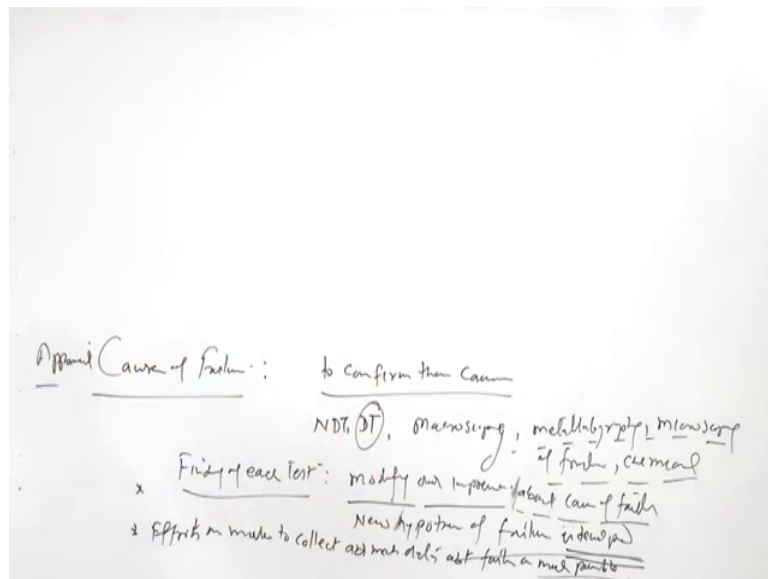 Apparent Cause of Failure : to confirm them Causes
NDT, DT, Macroscopy, metallography, microscopy
of fracture, chemical
* Finding of each Test : modify our impression/about cause of failure
New hypothesis of failure is developed
* Efforts are made to collect as much details abt failure as much possible